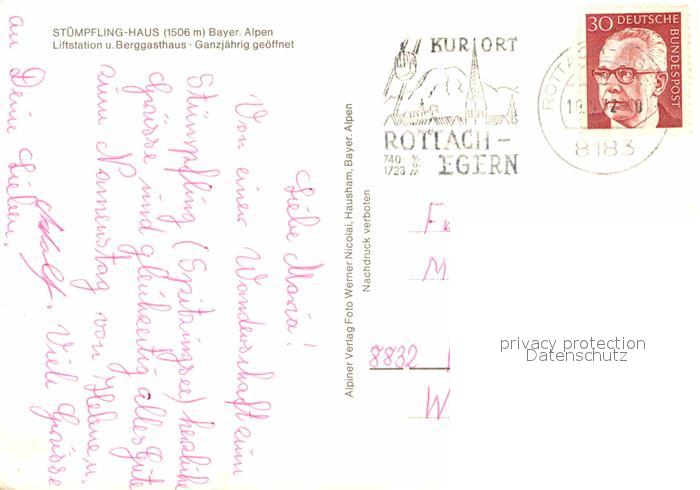 STÜMPFLING-HAUS (1506 m) Bayer. Alpen
Liftstation u. Berggasthaus · Ganzjährig geöffnet
Liebe Maria!
Von einer Wanderschaft zum
Stümpfling (Spitzingsee) herzliche
Grüsse und gleichzeitig alles Gute
zum Namenstag von Helene u.
Adolf. Viele Grüsse
an Deine Lieben.
Alpiner Verlag Foto Werner Nicolai, Hausham, Bayer. Alpen
Nachdruck verboten
KURORT
ROTTACH-
EGERN
740 M
1723 M
ROTTACH-EG
8183
30 DEUTSCHE
BUNDESPOST
F
M
8832
W
privacy protection
Datenschutz